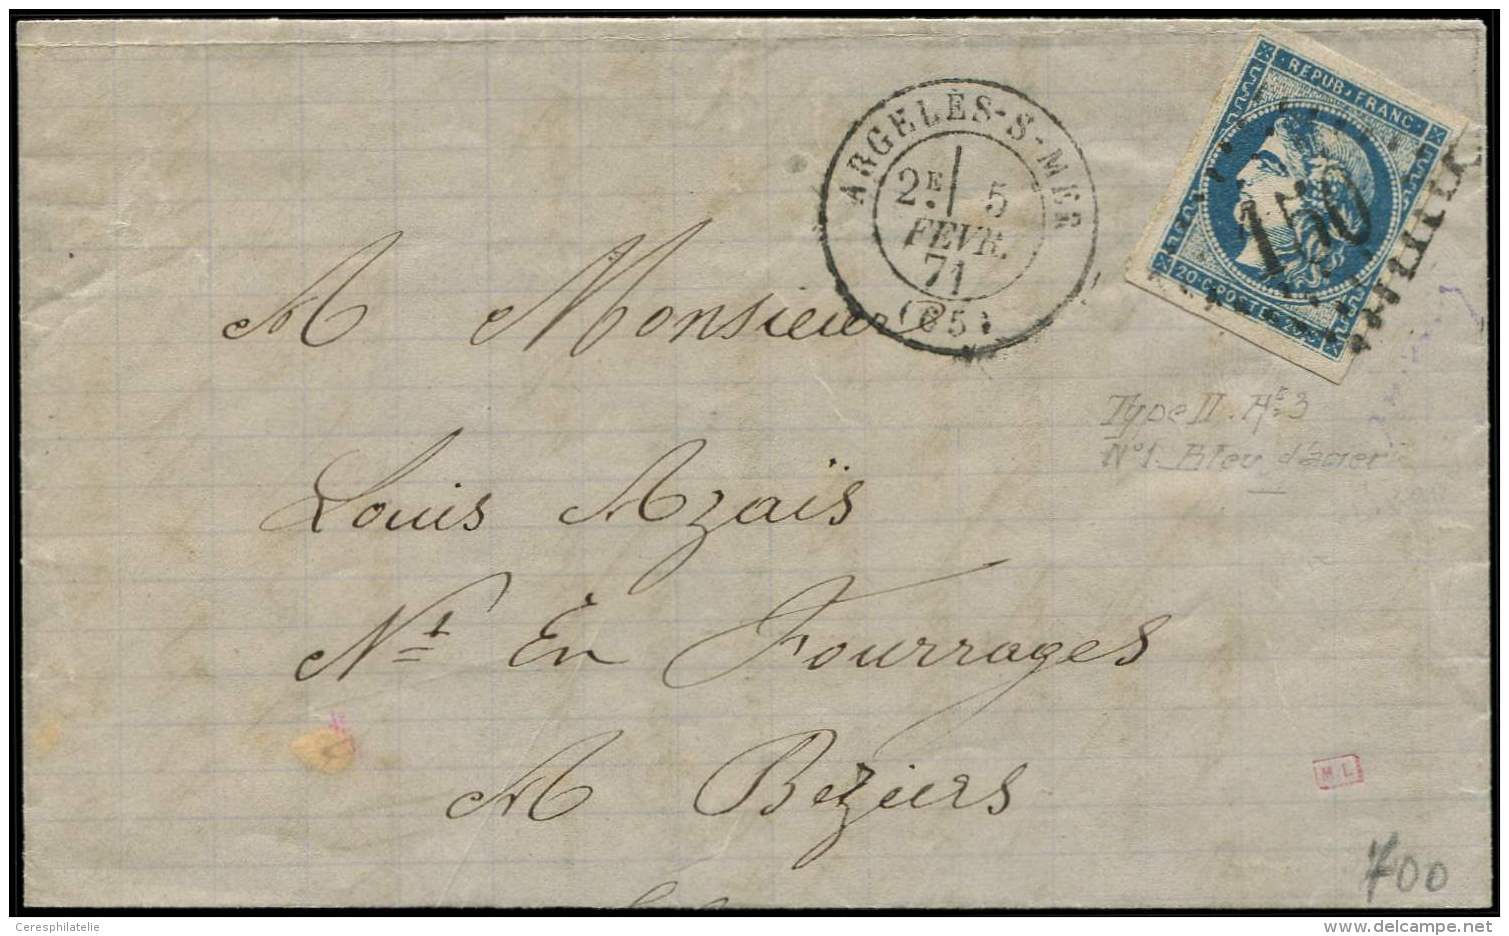 ARGELÈS-S-MER
2E 5
FEVR.
71
(65)
REPUB. FRANC.
150
20 C. POSTES 20 C
A Monsieur
Louis Azaïs
Nt En Fourrages
A Beziers
Type II. Rt 3
N°1. Bleu d'acier
M L
700
Ceresphilatelie
www.delcampe.net